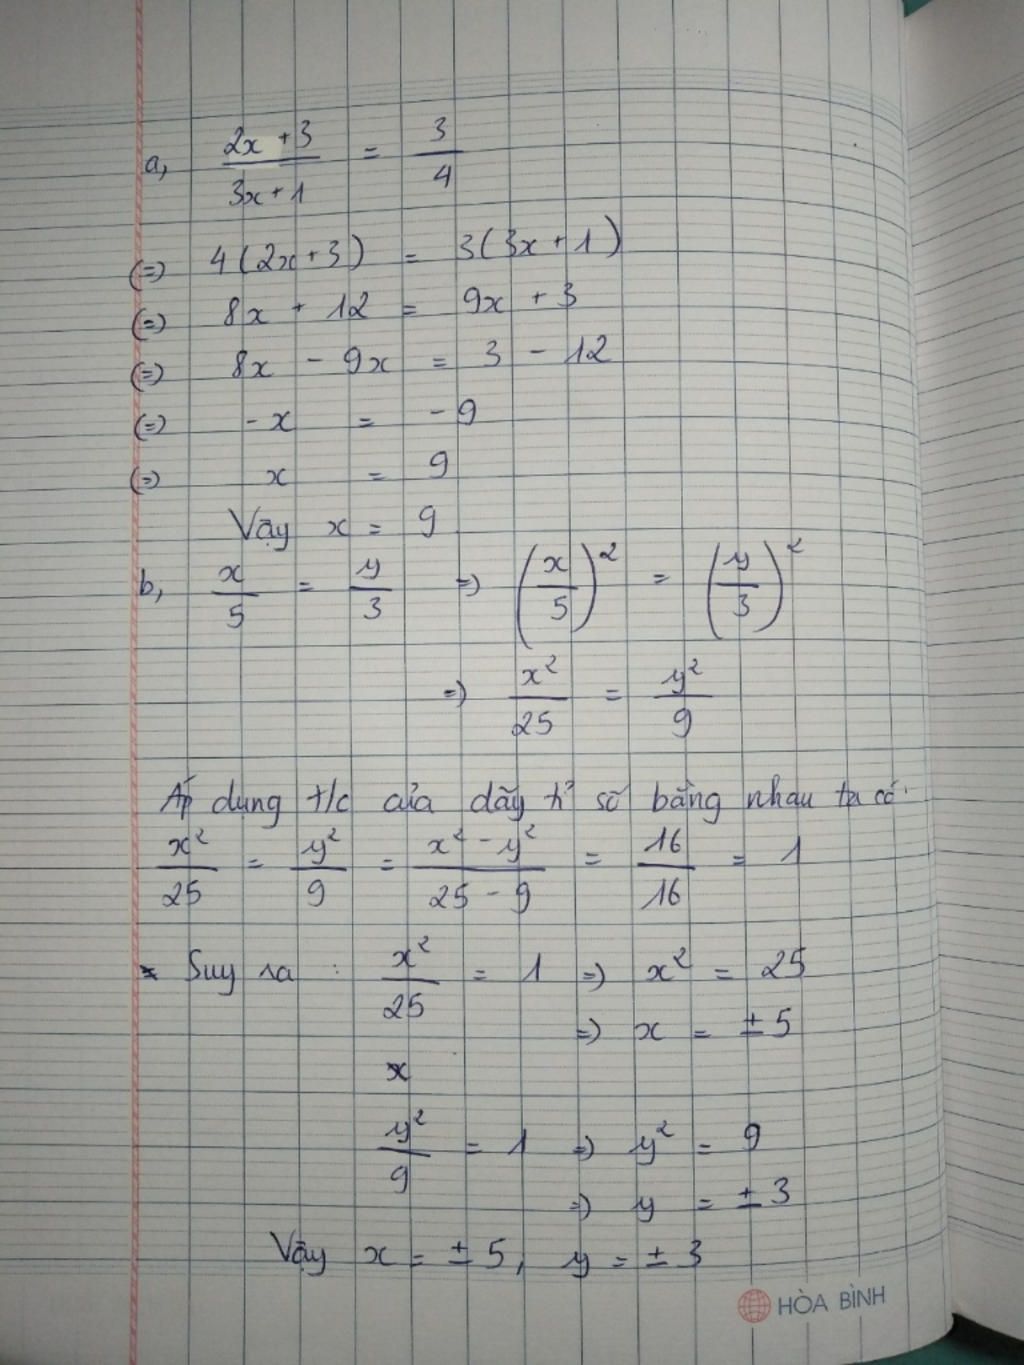 a, (2x + 3)/(3x + 1) = 3/4
(=) 4(2x+3) = 3(3x + 1)
(=) 8x + 12 = 9x + 3
(=) 8x - 9x = 3 - 12
(=) -x = -9
(=) x = 9
Vậy x = 9
b, x/5 = y/3 =) (x/5)² = (y/3)²
=) x²/25 = y²/9
Áp dụng t/c của dãy tỉ số bằng nhau ta có
x²/25 = y²/9 = (x² - y²)/(25 - 9) = 16/16 = 1
Suy ra : x²/25 = 1 =) x² = 25
=) x = ±5
x
y²/9 = 1 =) y² = 9
=) y = ±3
Vậy x = ±5, y = ±3
HÒA BÌNH